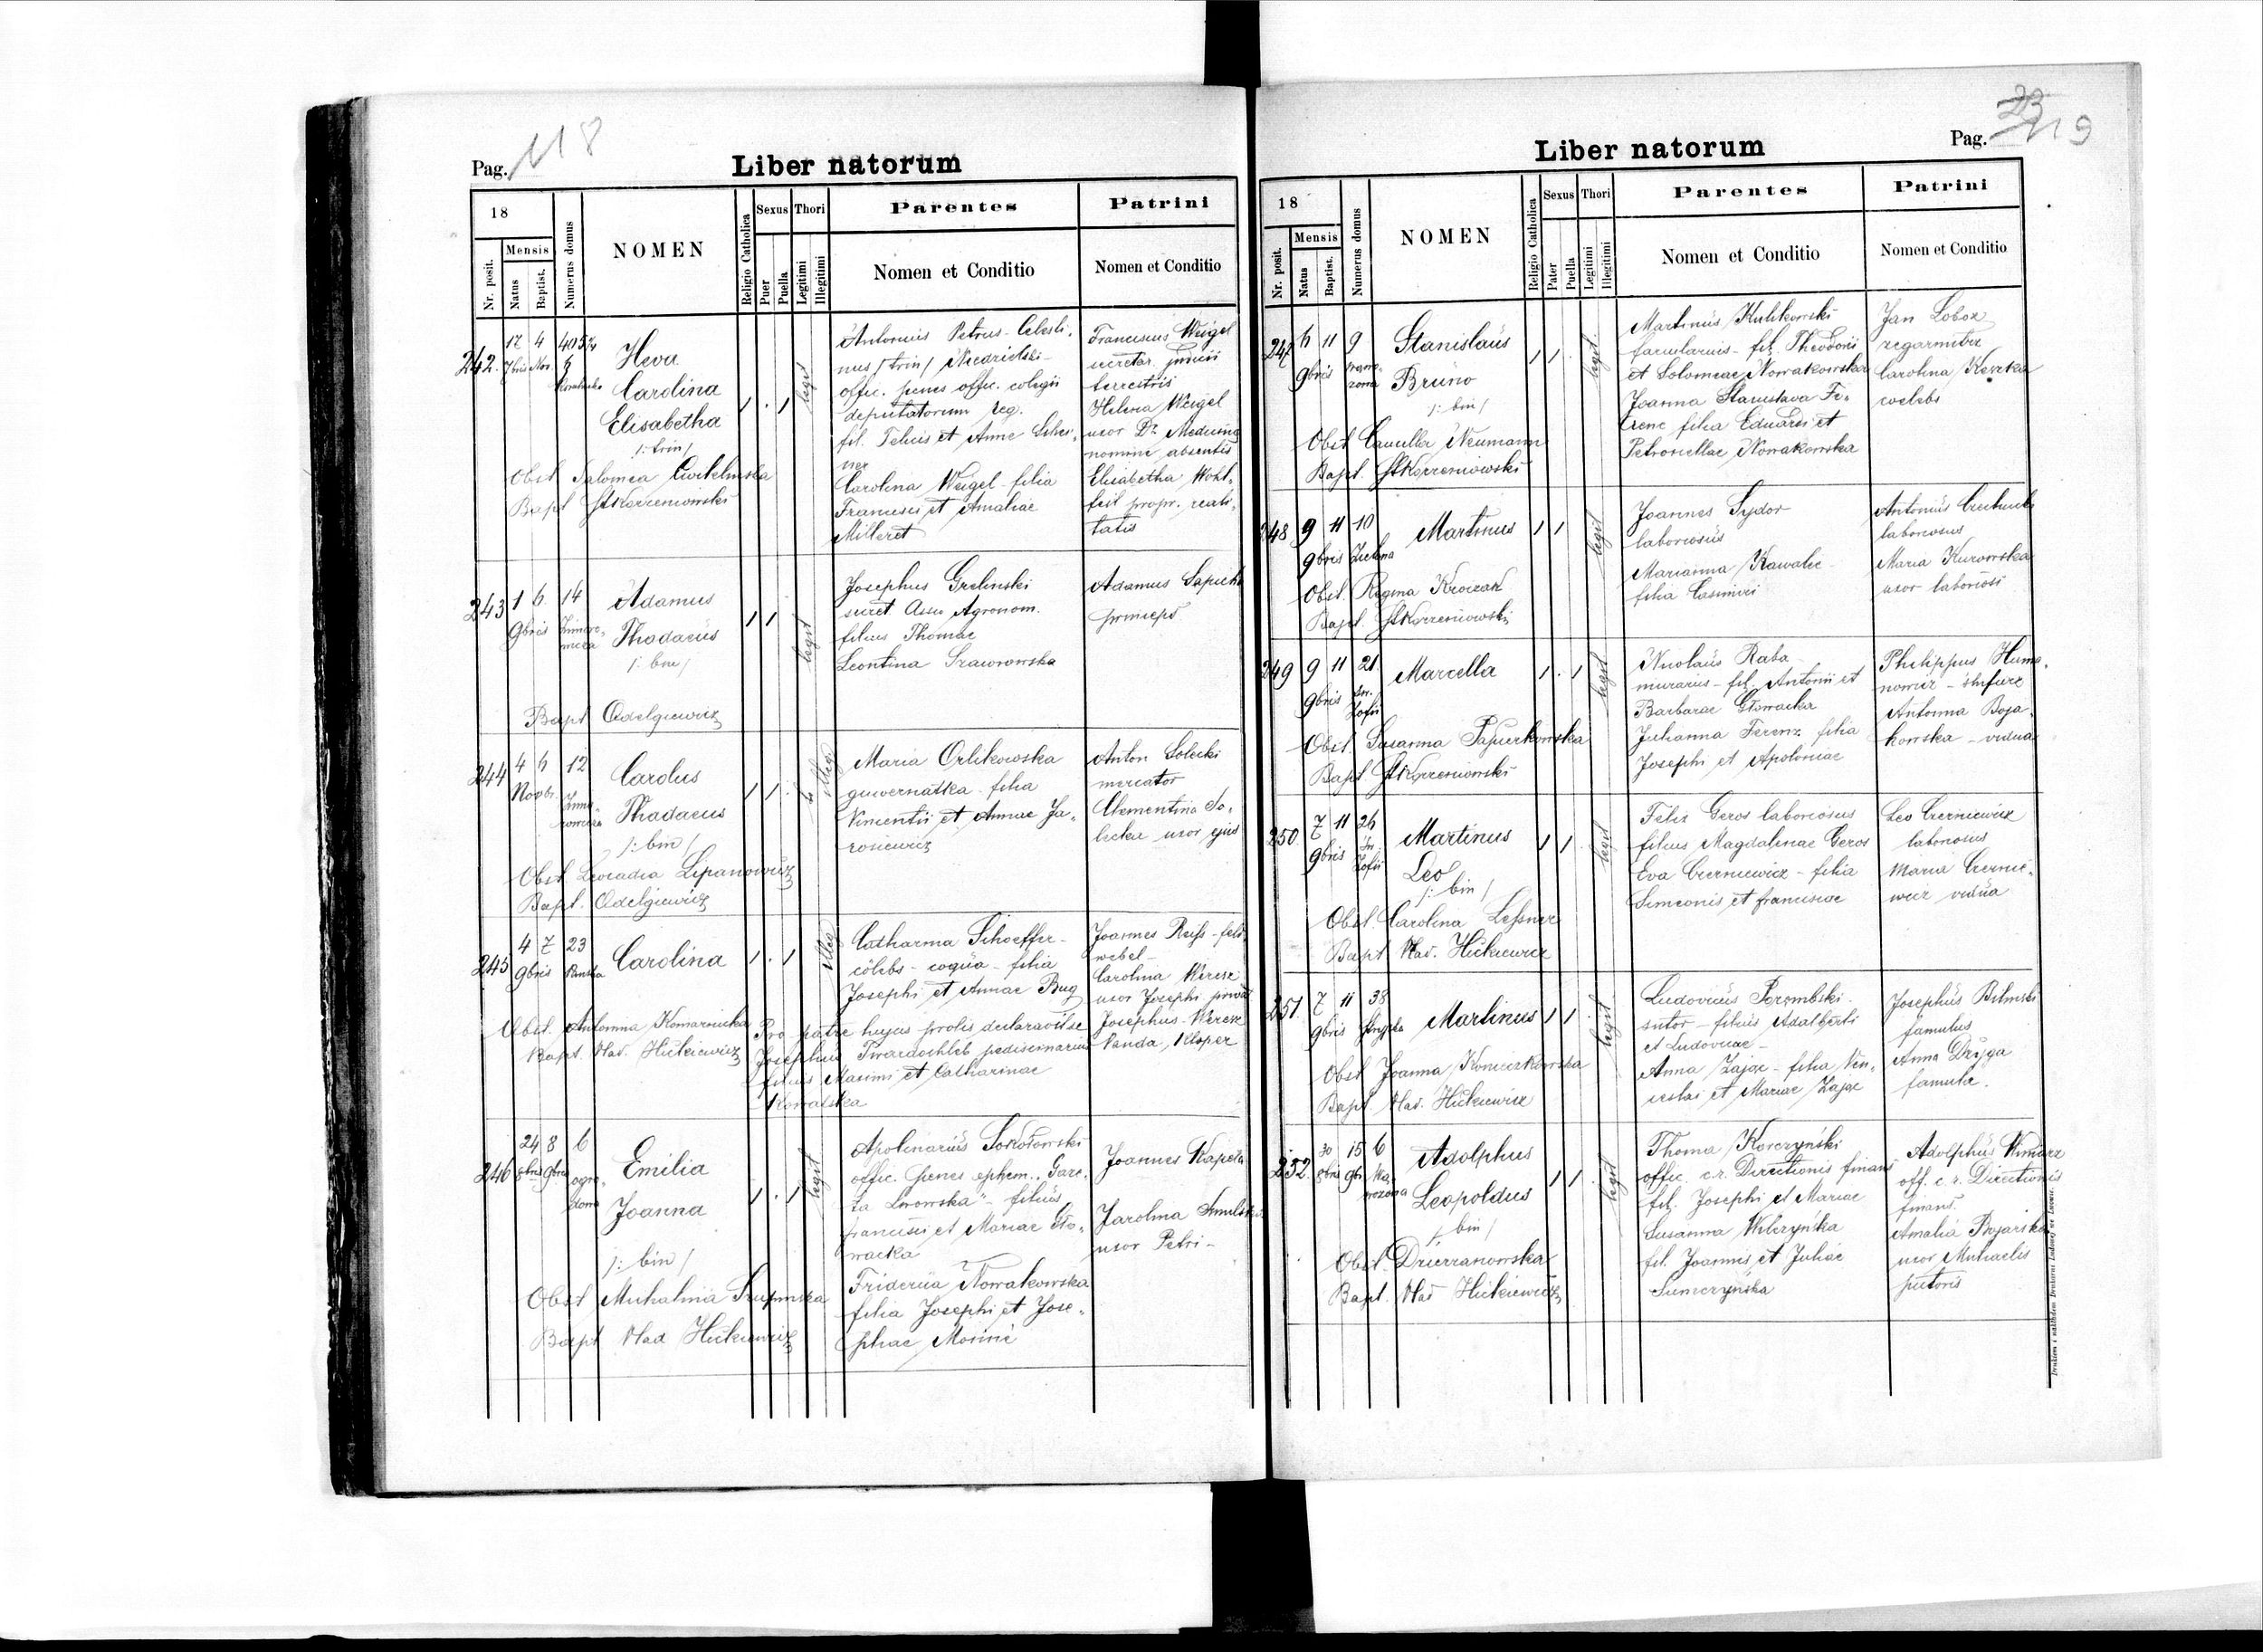 Pag. 118
Liber natorum
18
Mensis
Nr. posit.
Natus
Baptist.
Numerus domus
NOMEN
Religio Catholica
Sexus
Puer
Puella
Thori
Legitimi
Illegitimi
Parentes
Nomen et Conditio
Patrini
Nomen et Conditio
242.
17 4
7bris Nov.
Heva
Carolina
Elisabetha
/: trin /
legit
Obst Salomea Cwiklinska
Bapt StKorzeniowski
Antonius Petrus Celesti-
nus /trin/ Niedzielski
offic. penes offic. colegii
deputatorum reg.
fil. Felicis et Anne
Carolina Weigel filia
Francisci et Amaliae
Milleret
Franciscus Weigel
terrestris
Helena Weigel
uxor Dr. Medicina
nomine absentis
Elisabetha Wohl-
feil propr. reali-
tatis
243
1 6 14
9bris
Adamus
Thadaeus
/: bin /
legit
Bapt Adelgiewicz
Josephus Grelinski
secret. Asso Agronom.
filius Thomae
Leontina Szawrowska
Adamus Sapieha
princeps
244
4 6 12
Novbr.
Carolus
Thadaeus
/: bin /
Obst Leocadia Lipanowicz
Bapt. Adelgiewicz
Maria Orlikowska
guwernatka filia
Vincentii et Annae Ja-
rosiewicz
Anton Solecki
mercator
Clementina So-
lecka uxor ejus
245
4 7 23
9bris Panska
Carolina
illeg
Obst. Antonina Komarnicka
Bapt. Vlad. Hickiewicz
Catharina Schoeffer
cölebs - coqua - filia
Josephi et Annae Bug
Pro patre hujus prolis declaravit se
Josephus Twardochleb pedisernarius
filius Maximi et Catharinae
Kowalska
Joannes Reiss - feld-
webel
Carolina Weresz
uxor Josephi privat
Josephus Weresz
Vanda Kloper
246
24 8 6
8bris 9bris
Emilia
Joanna
/: bin /
legit
Obst Michalina Krupinska
Bapt Vlad Hickiewicz
Apolinarius Sokołowski
offic. penes ephem. "Gaze-
ta Lwowska" filius
Francisci et Mariae Gło-
wacka
Friderica Nowakowska
filia Josephi et Jose-
phae Morinė
Joannes Kapela
Karolina
uxor Petri
Pag. 119
Liber natorum
18
Mensis
Nr. posit.
Natus
Baptist.
Numerus domus
NOMEN
Religio Catholica
Sexus
Pater
Puella
Thori
Legitimi
Illegitimi
Parentes
Nomen et Conditio
Patrini
Nomen et Conditio
247
6 11 9
9bris
Stanislaüs
Bruno
/: bin /
legit
Obst Camilla Neumann
Bapt. StKorzeniowski
Martinus Kulikowski
famulus fil. Theodorii
et Solomeae Nowakowska
Joanna Stanislava Fe-
renc filia Eduardi et
Petronellae Nowakowska
Jan Loboz
zegarmitrz
Carolina Keszka
coelebs
248
9 11 10
9bris Zielona
Martinus
legit
Obst. Regina Kroczak
Bapt. StKorzeniowski
Joannes Sydor
laboriosus
Marianna Kawalec
filia Casimiri
Antonius
laboriosus
Maria Kurowska
uxor laboriosi
249
9 11 21
9bris Sw. Zofii
Marcella
legit
Obst. Susanna Papierkowska
Bapt StKorzeniowski
Nicolaüs Raba
murarius - fil. Antonii et
Barbarae Głowacka
Julianna Ferenz filia
Josephi et Apoloniae
Philippus Hume-
nowicz
Antonina Boja-
kowska - vidua
250.
7 11 26
9bris Sw. Zofii
Martinus
Leo
/: bin /
legit
Obst Carolina Lessner
Bapt Vlad. Hickiewicz
Felix Geros laboriosus
filius Magdalinae Geros
Eva Czerniewicz - filia
Simeonis et franciscae
Leo Czerniewicz
laboriosus
Maria Czernie-
wicz vidua
251.
7 11 38
9bris
Martinus
legit
Obst Joanna Konieczkowska
Bapt Vlad. Hickiewicz
Ludovicus Perembski
sutor - filius Adalberti
et Ludovicae
Anna Zajac - filia Ven-
ceslai et Mariae Zajac
Josephus Bilinski
famulus
Anna Dżyga
famula.
252.
30 15 6
8bris 9br
Adolphus
Leopoldus
/: bin /
legit
Obst Dzierzanowska
Bapt. Vlad Hickiewicz
Thoma Korczyński
offic. c.r. Directionis finans
fil. Josephi et Mariae
Susanna Wilczyńska
fil. Joannis et Juliae
Sumczyńska
Adolphus
off. c.r. Directionis
finans.
Amalia Bojarska
uxor Michaelis
pictoris
Drukiem i nakładem Drukarni Ludowej we Lwowie.